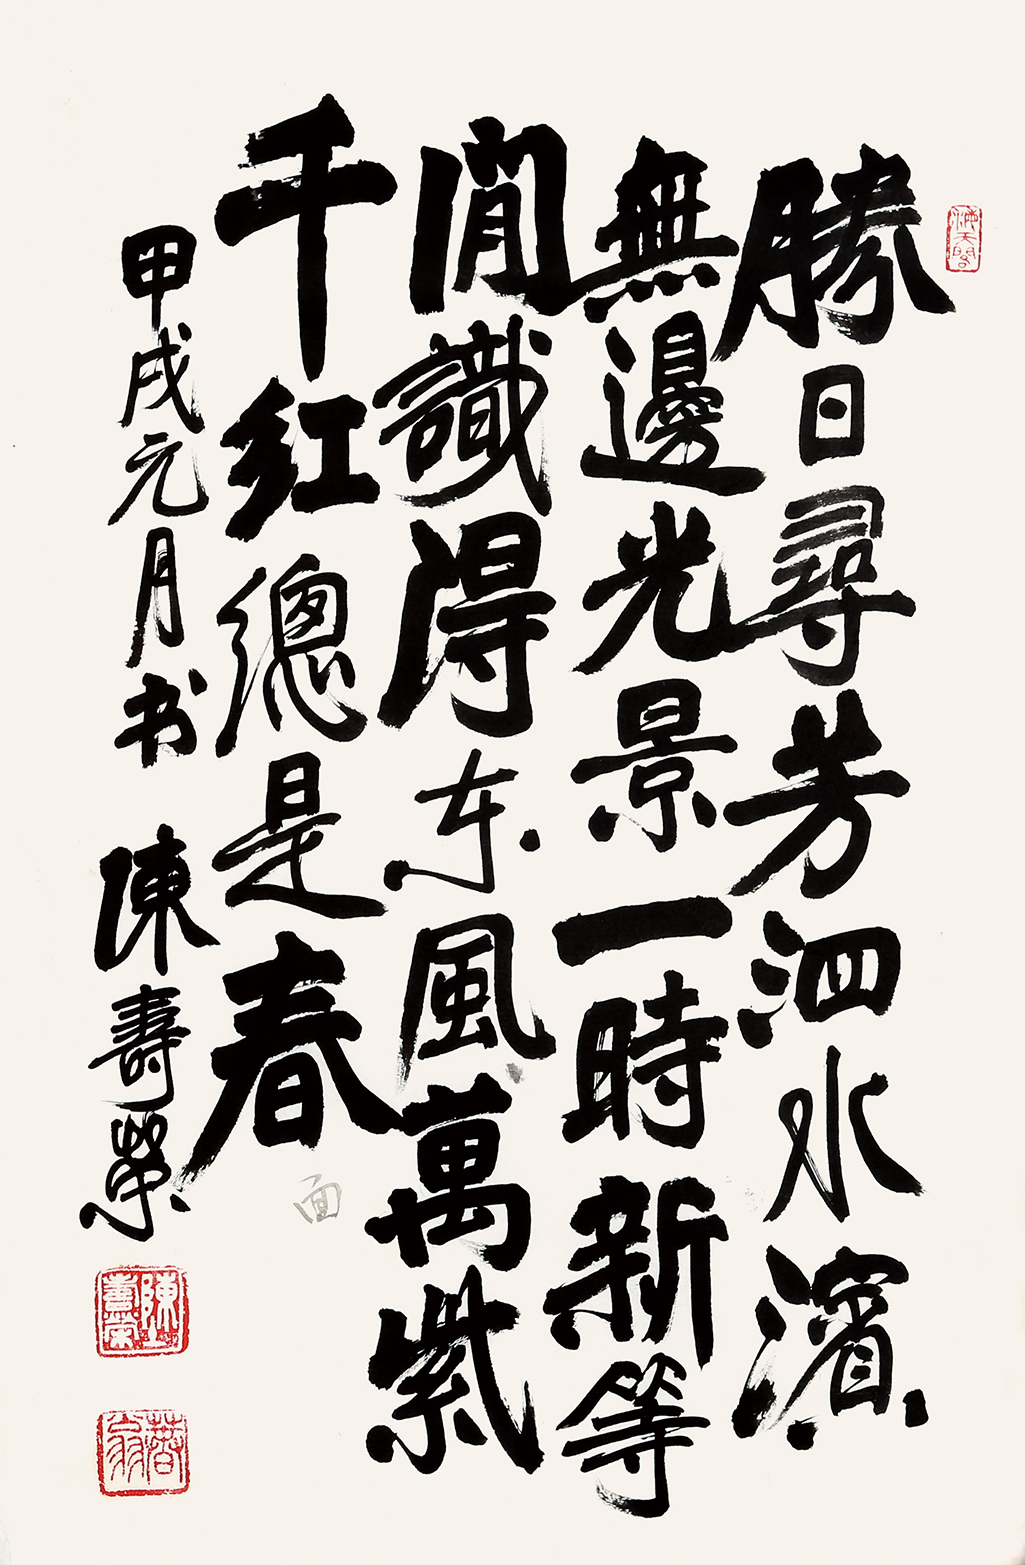 勝日尋芳泗水濱
無邊光景一時新等
閒識得东風萬紫
千红總是春
面
甲戌元月书 陳壽榮
陳壽榮